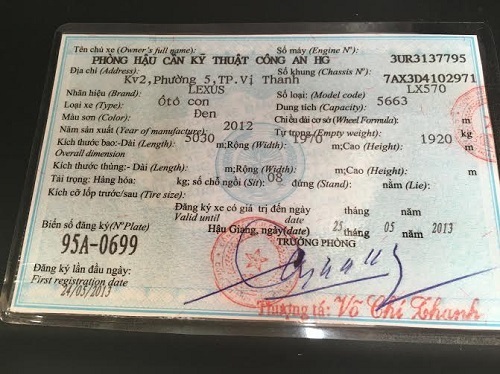 Tên chủ xe (Owner's full name): Số máy (Engine Nº):
PHÒNG HẬU CẦN KỸ THUẬT CÔNG AN HG 3UR3137795
Địa chỉ (Address): Số khung (Chassis Nº):
Kv2, Phường 5, TP.Vị Thanh 7AX3D4102971
Nhãn hiệu (Brand): LEXUS Số loại: (Model code) LX570
Loại xe (Type): Ôtô con Dung tích (Capacity): 5663
Màu sơn (Color): Đen Chiều dài cơ sở (Wheel Formula): m
Năm sản xuất (Year of manufacture): 2012 Tự trọng (Empty weight):
Kích thước bao:-Dài (Length): 5030 m;Rộng (Width): 1970 m;Cao (Height): 1920 m.
Overall dimension
Kích thước thùng:- Dài (Length): m;Rộng (Width): m;Cao (Height): m
Tải trọng: Hàng hóa: kg; số chỗ ngồi (Sit): 08 đứng (Stand): nằm (Lie):
Kích cỡ lốp trước/sau (Tire size):
Đăng ký xe có giá trị đến ngày tháng năm
Valid until
Biển số đăng ký(NºPlate) Hậu Giang, ngày(date) 25 tháng 05 năm 2013
95A-0699 TRƯỞNG PHÒNG
Đăng ký lần đầu ngày:
First registration date
24/05/2013
Thượng tá: Võ Chí Thanh